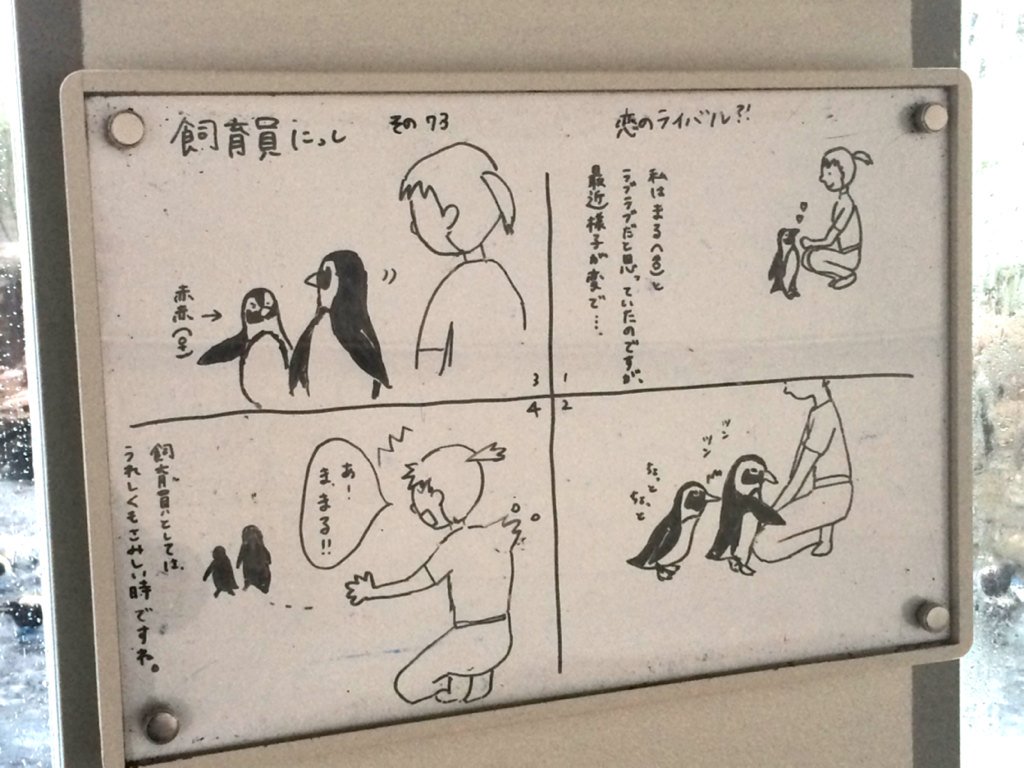 飼育員にっし その73
恋のライバル?!
1
私はまる(♂)と
ラブラブだと思っていたのですが、
最近様子が変で…。
2
ツン
ツン
ちょっと
ちょっと
3
赤赤(♀)→
4
あー
ま、まる!!
飼育員としては、
うれしくもさみしい時ですね。